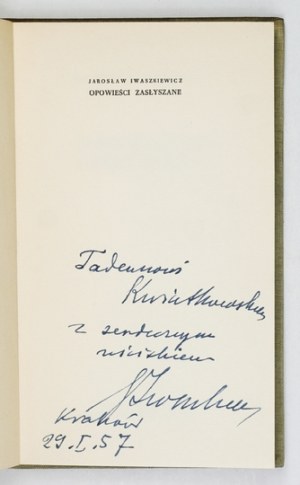 JAROSŁAW IWASZKIEWICZ
OPOWIEŚCI ZASŁYSZANE
Tadeuszowi
Kwiatkowskiemu
z serdecznym
uściskiem
Kraków
29.I.57